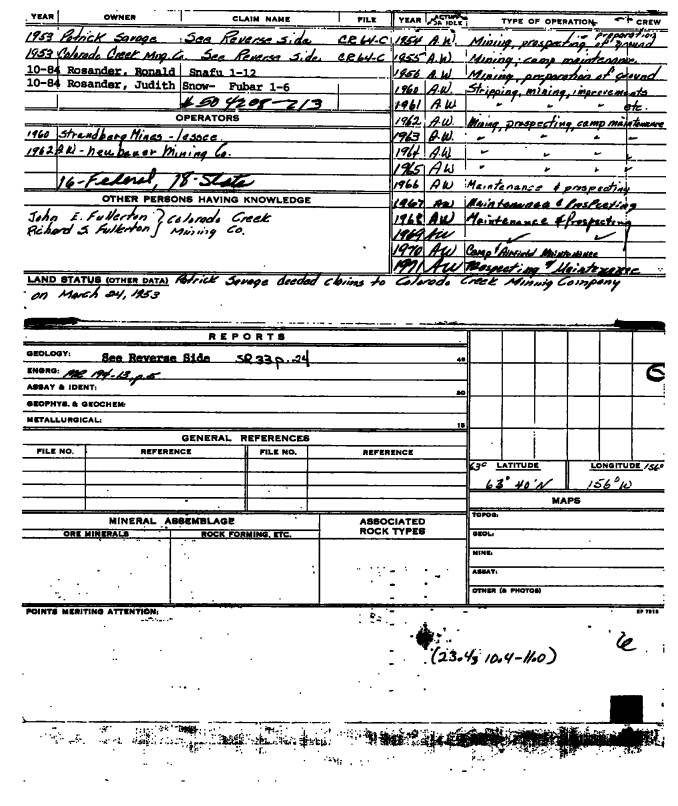 YEAR OWNER CLAIM NAME FILE
1953 Patrick Savage See Reverse side. CR64-C
1953 Colorado Creek Mng. Co. See Reverse Side. CR64-C
10-84 Rosander, Ronald Snafu 1-12
10-84 Rosander, Judith Snow- Fubar 1-6
OPERATORS
1960 Strandberg Mines - lessee
1962 AW - Neubauer Mining Co.
16-Federal, 78-State
OTHER PERSONS HAVING KNOWLEDGE
John E. Fullerton } Colorado Creek
Richard S. Fullerton } Mining Co.
YEAR ACTIVE OR IDLE TYPE OF OPERATION CREW
1954 A.W. Mining, prospecting, preparation of ground
1955 A.W. Mining; camp maintenance
1956 A.W. Mining, preparation of ground
1960 A.W. Stripping, mining, improvements
1961 A.W " " " etc.
1962 A.W. Mining, prospecting, camp maintenance
1963 A.W. " " "
1964 A.W. " " "
1965 AW " " "
1966 AW Maintenance & prospecting
1967 AW Maintenance & Prospecting
1968 AW Maintenance & Prospecting
1969 AW
1970 AW Camp & Airfield Maintenance
1971 AW Prospecting & Maintenance
LAND STATUS (OTHER DATA) Patrick Savage deeded claims to Colorado Creek Mining Company
on March 24, 1953
REPORTS
GEOLOGY: See Reverse Side SR 33 p.24 40
ENGRG: 194-13, p.5
ASSAY & IDENT: 20
GEOPHYS. & GEOCHEM:
METALLURGICAL: 15
GENERAL REFERENCES
FILE NO. REFERENCE FILE NO. REFERENCE
63° LATITUDE LONGITUDE 156°
63° 40' N 156° W
MAPS
TOPOG:
GEOL:
MINE:
ASSAY:
OTHER (& PHOTOS)
MINERAL ASSEMBLAGE ASSOCIATED ROCK TYPES
ORE MINERALS ROCK FORMING, ETC.
POINTS MERITING ATTENTION:
(23.4, 10.4-11.0)